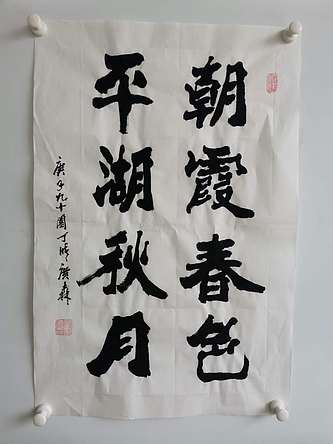 朝霞春色
平湖秋月
庚子九十園丁廣森